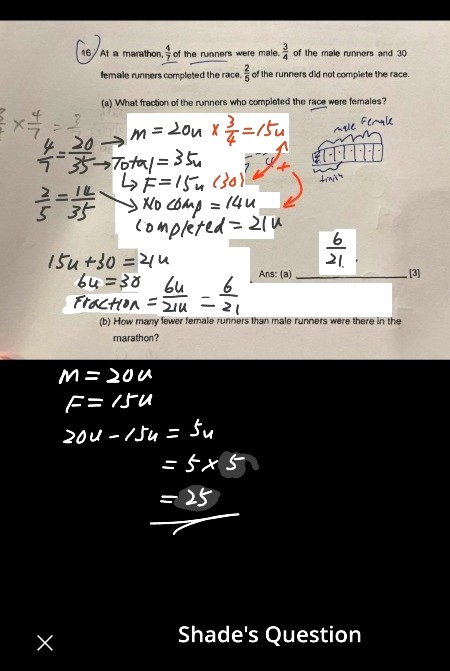 16. At a marathon, 4/7 of the runners were male. 3/4 of the male runners and 30
female runners completed the race. 2/5 of the runners did not complete the race.
(a) What fraction of the runners who completed the race were females?
× 4/7 =
male Female
finish
4/7 = 20/35 → M = 20u × 3/4 = 15u
Total = 35u
↳ F = 15u (30)
2/5 = 14/35 → No comp = 14u
Completed = 21u
15u + 30 = 21u
6u = 30
Fraction = 6u/21u = 6/21
6/21
Ans: (a) [3]
(b) How many fewer female runners than male runners were there in the
marathon?
M = 20u
F = 15u
20u - 15u = 5u
= 5 × 5
= 25
× Shade's Question